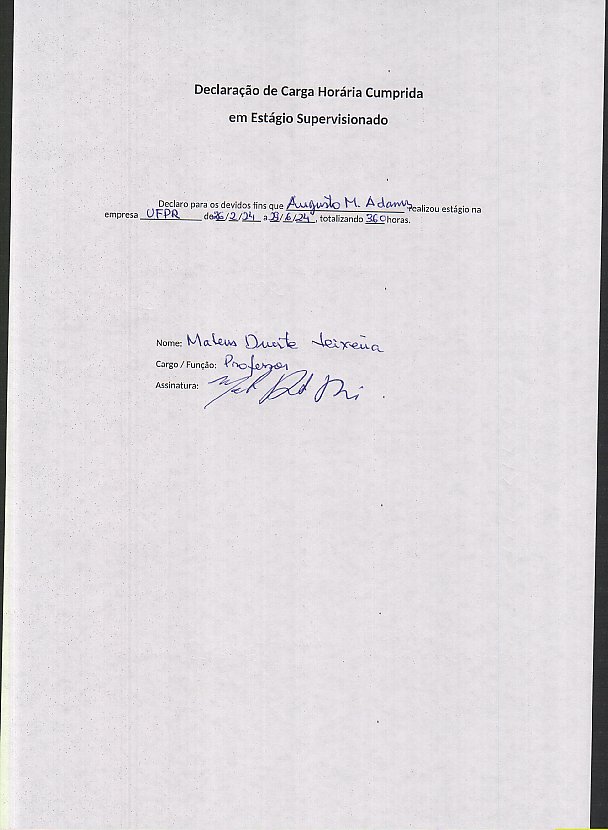 Declaração de Carga Horária Cumprida
em Estágio Supervisionado
Declaro para os devidos fins que Augusto M. Adams realizou estágio na
empresa UFPR de 26/2/24 a 28/6/24, totalizando 360 horas.
Nome: Mateus Duarte Teixeira
Cargo / Função: Professor
Assinatura: